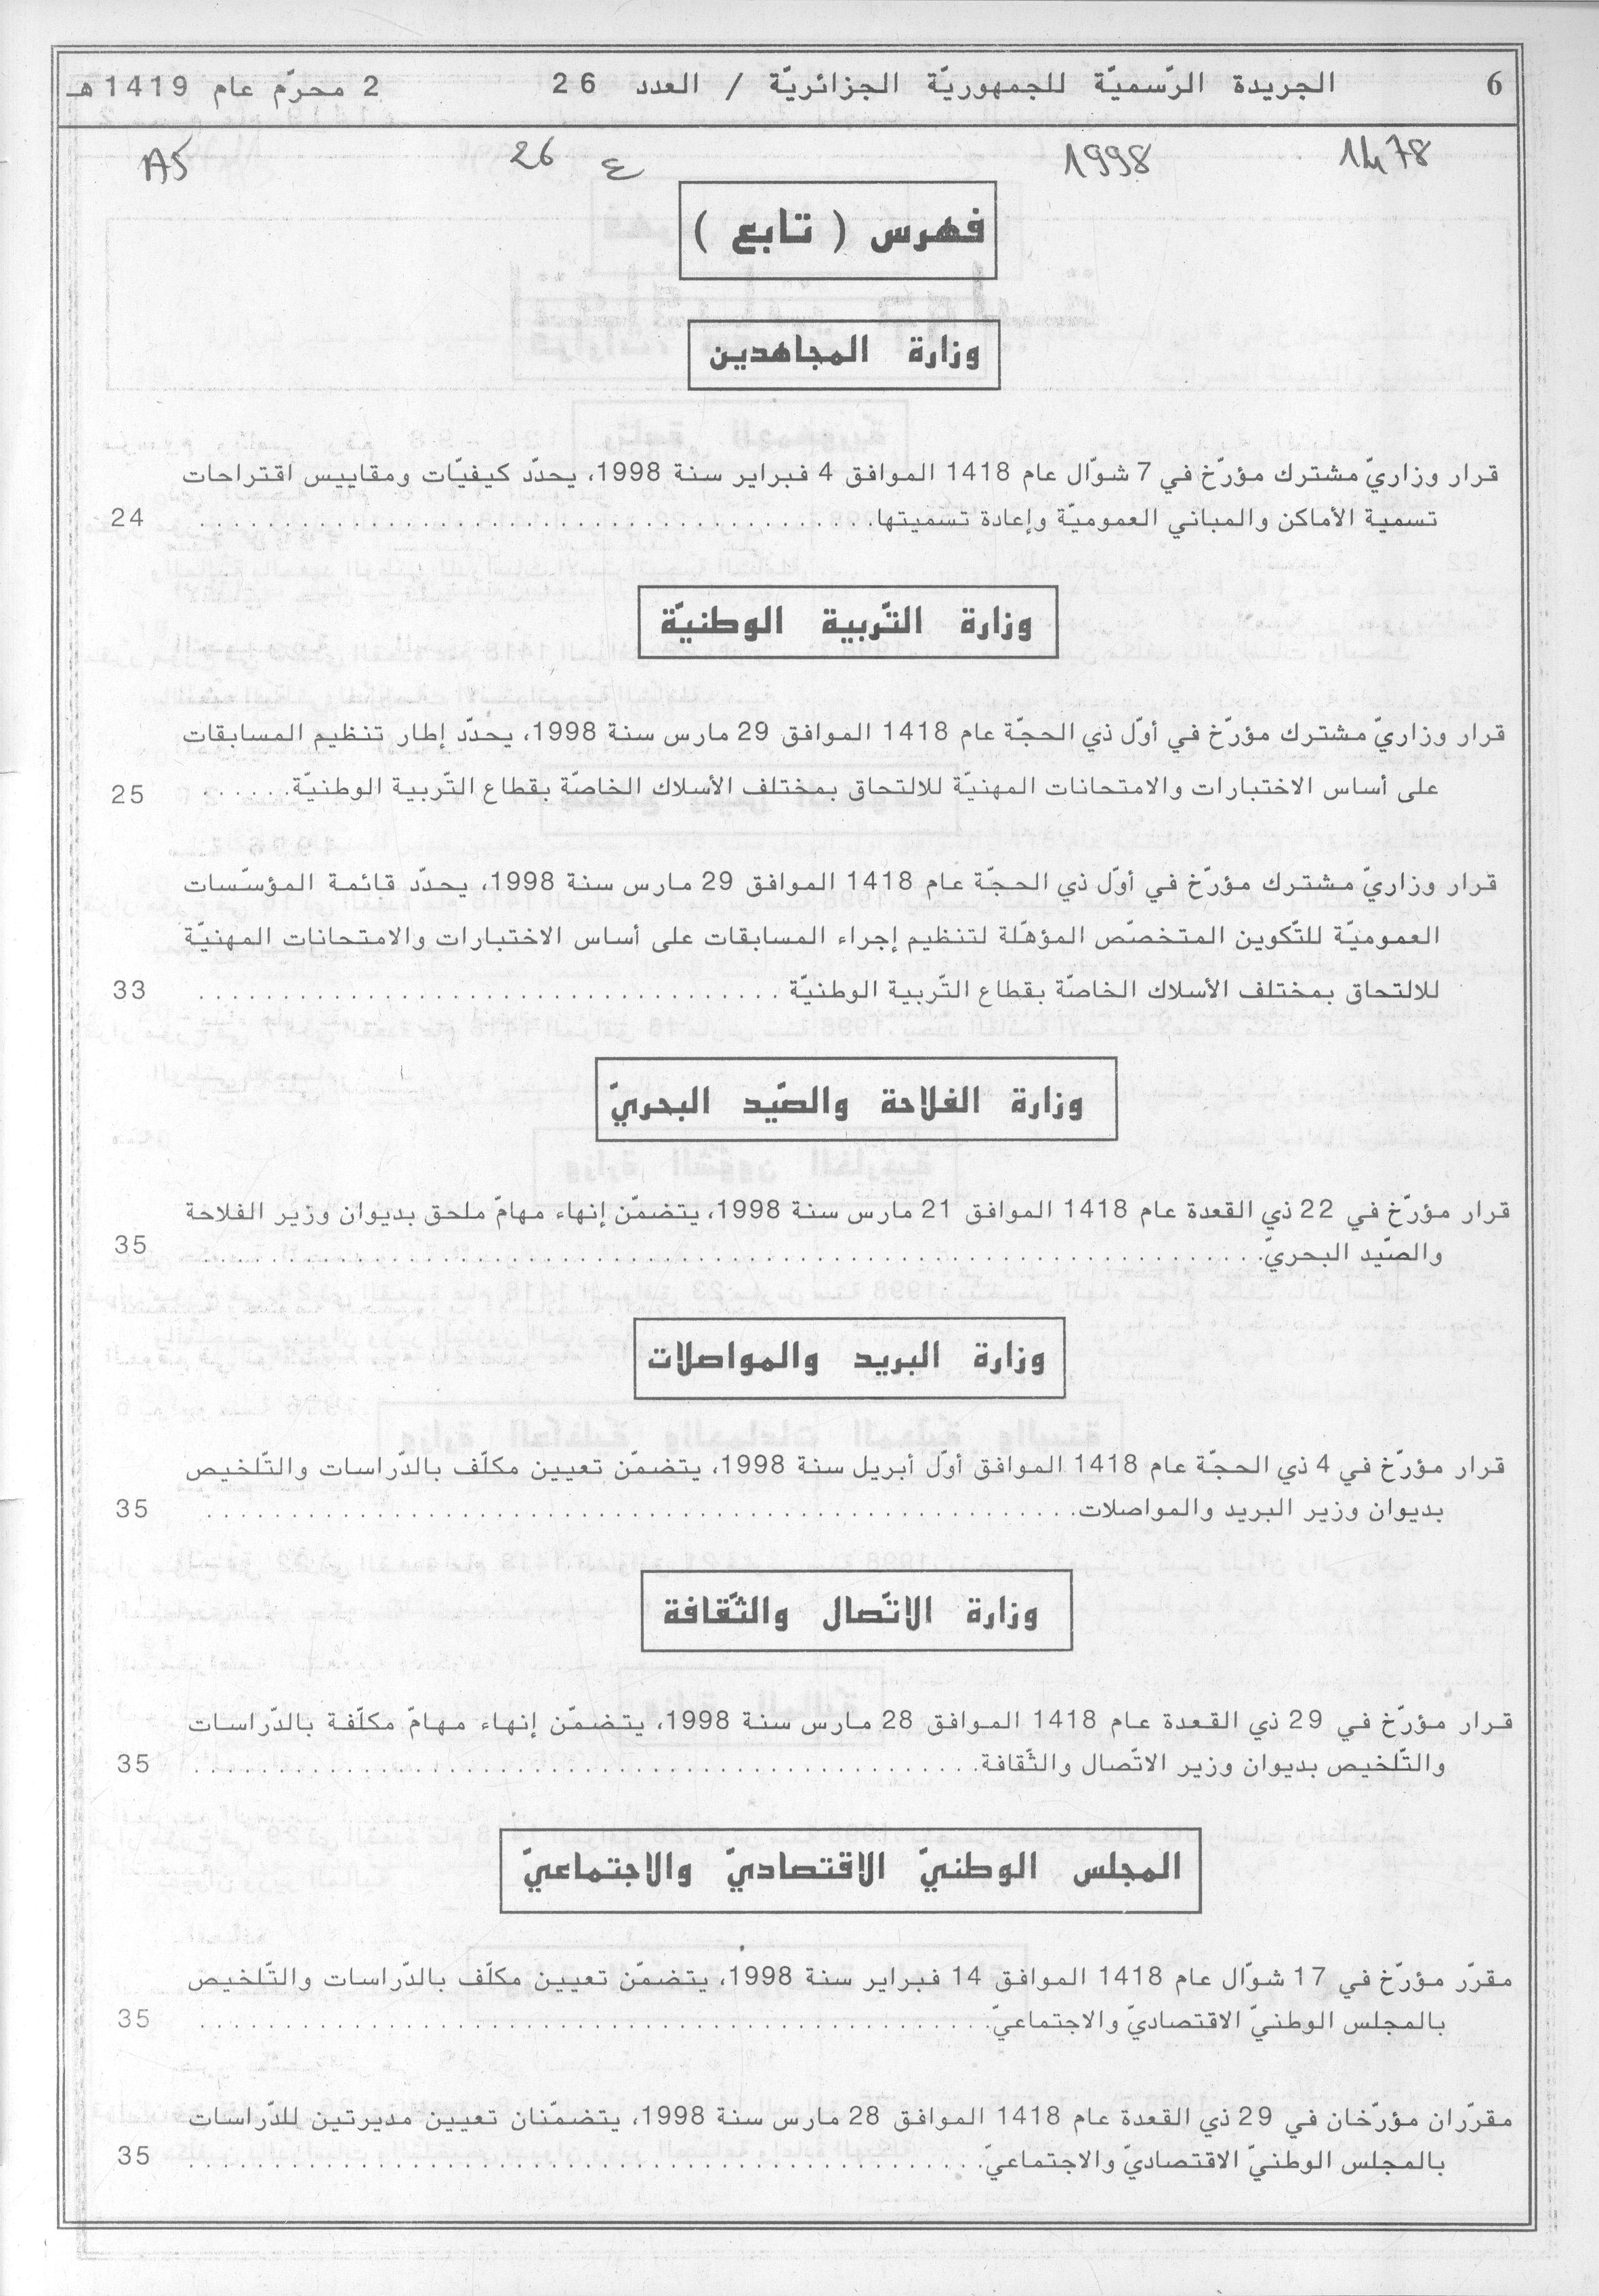 6 الجريدة الرّسميّة للجمهوريّة الجزائريّة / العدد 26 2 محرّم عام 1419 هـ
1478 1998 ع 26 A5
فهرس ( تابع )
وزارة المجاهدين
قرار وزاريّ مشترك مؤرّخ في 7 شوّال عام 1418 الموافق 4 فبراير سنة 1998، يحدّد كيفيّات ومقاييس اقتراحات
تسمية الأماكن والمباني العموميّة وإعادة تسميتها. . . . . . . . . . . . . . . . . . . . . . . . . . . . . . 24
وزارة التّربية الوطنيّة
قرار وزاريّ مشترك مؤرّخ في أوّل ذي الحجّة عام 1418 الموافق 29 مارس سنة 1998، يحدّد إطار تنظيم المسابقات
على أساس الاختبارات والامتحانات المهنيّة للالتحاق بمختلف الأسلاك الخاصّة بقطاع التّربية الوطنيّة. . . . . . 25
قرار وزاريّ مشترك مؤرّخ في أوّل ذي الحجّة عام 1418 الموافق 29 مارس سنة 1998، يحدّد قائمة المؤسّسات
العموميّة للتّكوين المتخصّص المؤهّلة لتنظيم إجراء المسابقات على أساس الاختبارات والامتحانات المهنيّة
للالتحاق بمختلف الأسلاك الخاصّة بقطاع التّربية الوطنيّة . . . . . . . . . . . . . . . . . . . . . . . . . . 33
وزارة الفلاحة والصّيد البحريّ
قرار مؤرّخ في 22 ذي القعدة عام 1418 الموافق 21 مارس سنة 1998، يتضمّن إنهاء مهامّ ملحق بديوان وزير الفلاحة
والصّيد البحريّ. . . . . . . . . . . . . . . . . . . . . . . . . . . . . . . . . . . . . . . . . . . . . . 35
وزارة البريد والمواصلات
قرار مؤرّخ في 4 ذي الحجّة عام 1418 الموافق أوّل أبريل سنة 1998، يتضمّن تعيين مكلّف بالدّراسات والتّلخيص
بديوان وزير البريد والمواصلات. . . . . . . . . . . . . . . . . . . . . . . . . . . . . . . . . . . . . . 35
وزارة الاتّصال والثّقافة
قرار مؤرّخ في 29 ذي القعدة عام 1418 الموافق 28 مارس سنة 1998، يتضمّن إنهاء مهامّ مكلّفة بالدّراسات
والتّلخيص بديوان وزير الاتّصال والثّقافة. . . . . . . . . . . . . . . . . . . . . . . . . . . . . . . . . . 35
المجلس الوطنيّ الاقتصاديّ والاجتماعيّ
مقرّر مؤرّخ في 17 شوّال عام 1418 الموافق 14 فبراير سنة 1998، يتضمّن تعيين مكلّف بالدّراسات والتّلخيص
بالمجلس الوطنيّ الاقتصاديّ والاجتماعيّ. . . . . . . . . . . . . . . . . . . . . . . . . . . . . . . . . . 35
مقرّران مؤرّخان في 29 ذي القعدة عام 1418 الموافق 28 مارس سنة 1998، يتضمّنان تعيين مديرتين للدّراسات
بالمجلس الوطنيّ الاقتصاديّ والاجتماعيّ. . . . . . . . . . . . . . . . . . . . . . . . . . . . . . . . . . 35